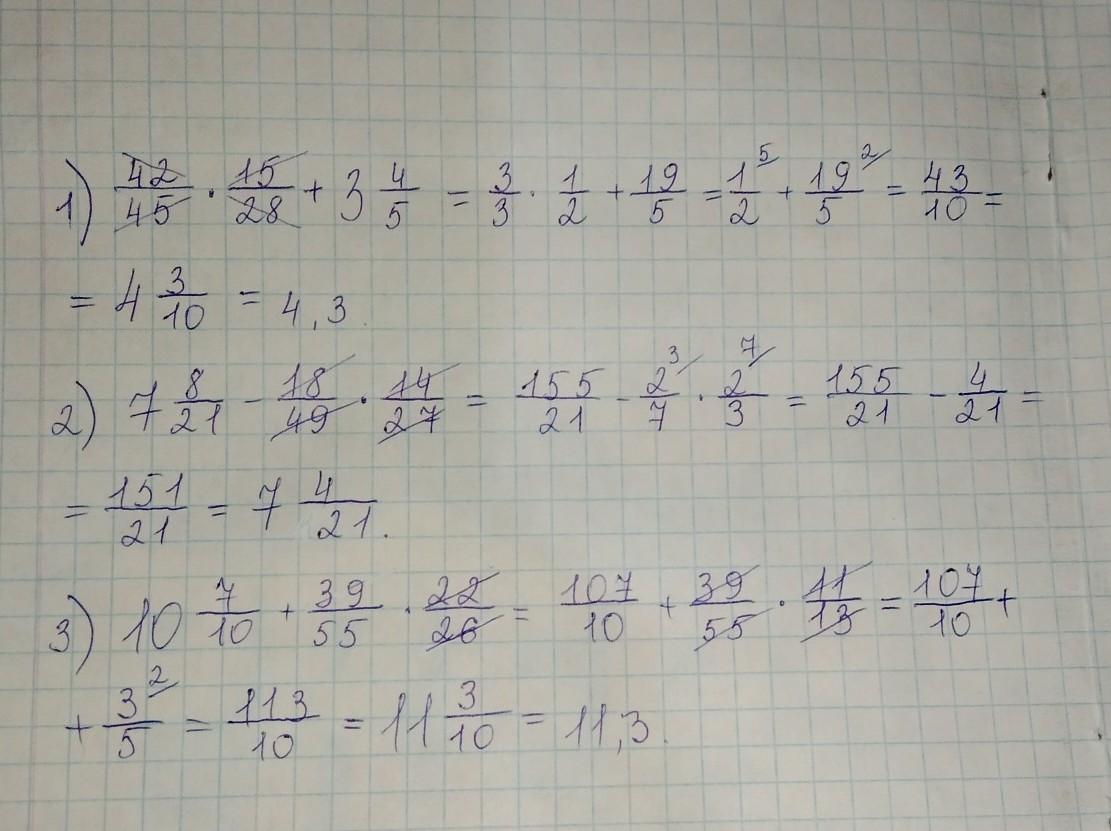 1) 42/45 · 15/28 + 3 4/5 = 3/3 · 1/2 + 19/5 = 1/2 5 + 19/5 2 = 43/10 =
= 4 3/10 = 4,3.
2) 7 8/21 - 18/49 · 14/27 = 155/21 - 2/7 3 · 2/3 7 = 155/21 - 4/21 =
= 151/21 = 7 4/21.
3) 10 7/10 + 39/55 · 22/26 = 107/10 + 39/55 · 11/13 = 107/10 +
+ 3/5 2 = 113/10 = 11 3/10 = 11,3.